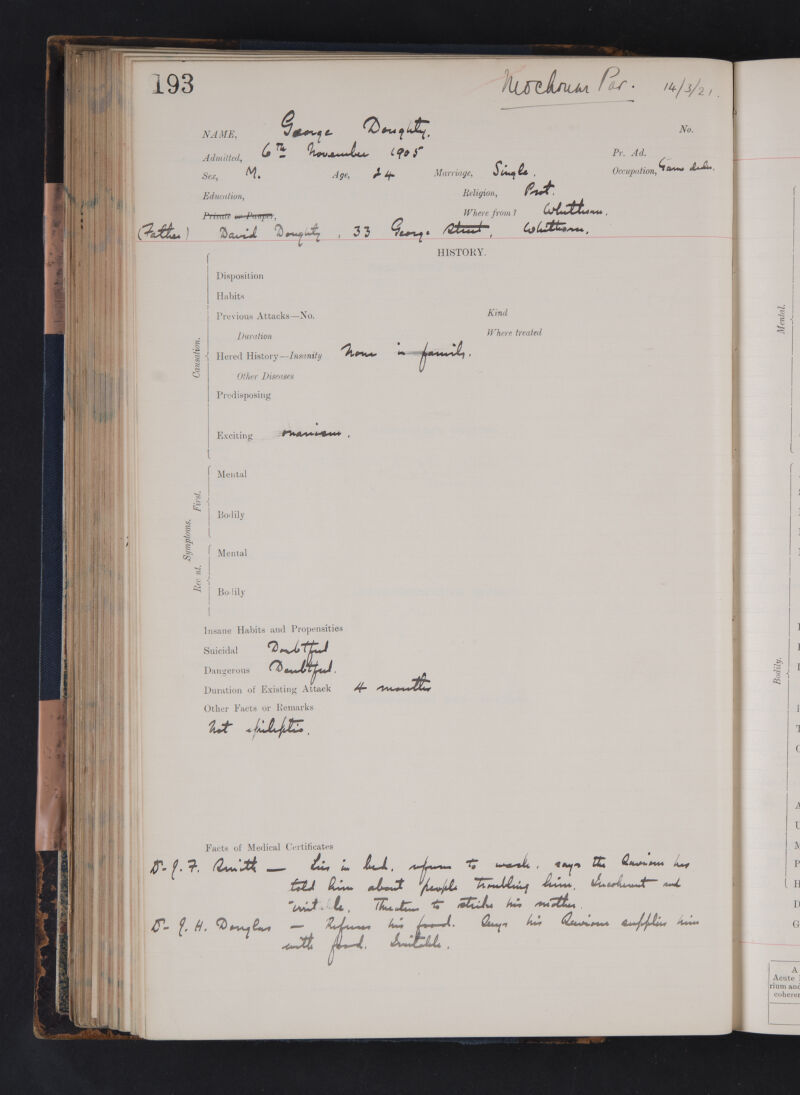 193
Mochrum Par. 14/3/21.
NAME, George Doughty. No.
Admitted, 6TH November 1905 Pr. Ad.
Sex, M. Age, 24 Marriage, Single. Occupation, Game dealer.
Education, Religion, Prot.
Private or Pauper, Where from? Whithorn.
(Father) David Doughty, 33 George Street, Whithorn.
HISTORY.
Causation.
Disposition
Habits
Previous Attacks—No. Kind
Duration Where treated
Hered History—Insanity None in family.
Other Diseases
Predisposing
Exciting onanism.
Symptoms.
First.
Mental
Bodily
Recent.
Mental
Bodily
Insane Habits and Propensities
Suicidal Doubtful
Dangerous Doubtful.
Duration of Existing Attack 4 months
Other Facts or Remarks
Not epileptic.
Facts of Medical Certificates
Dr J. F. Smith — Lies in bed, refuses to work, says the Saviour has
told him about people troubling him. Incoherent and
irritable. Threatens to strike his mother.
Dr J. H. Douglas — Refuses his food. Says his Saviour supplies him
with food. Irritable.
Mental.
Bodily.
A
Acute
rium and
coherer